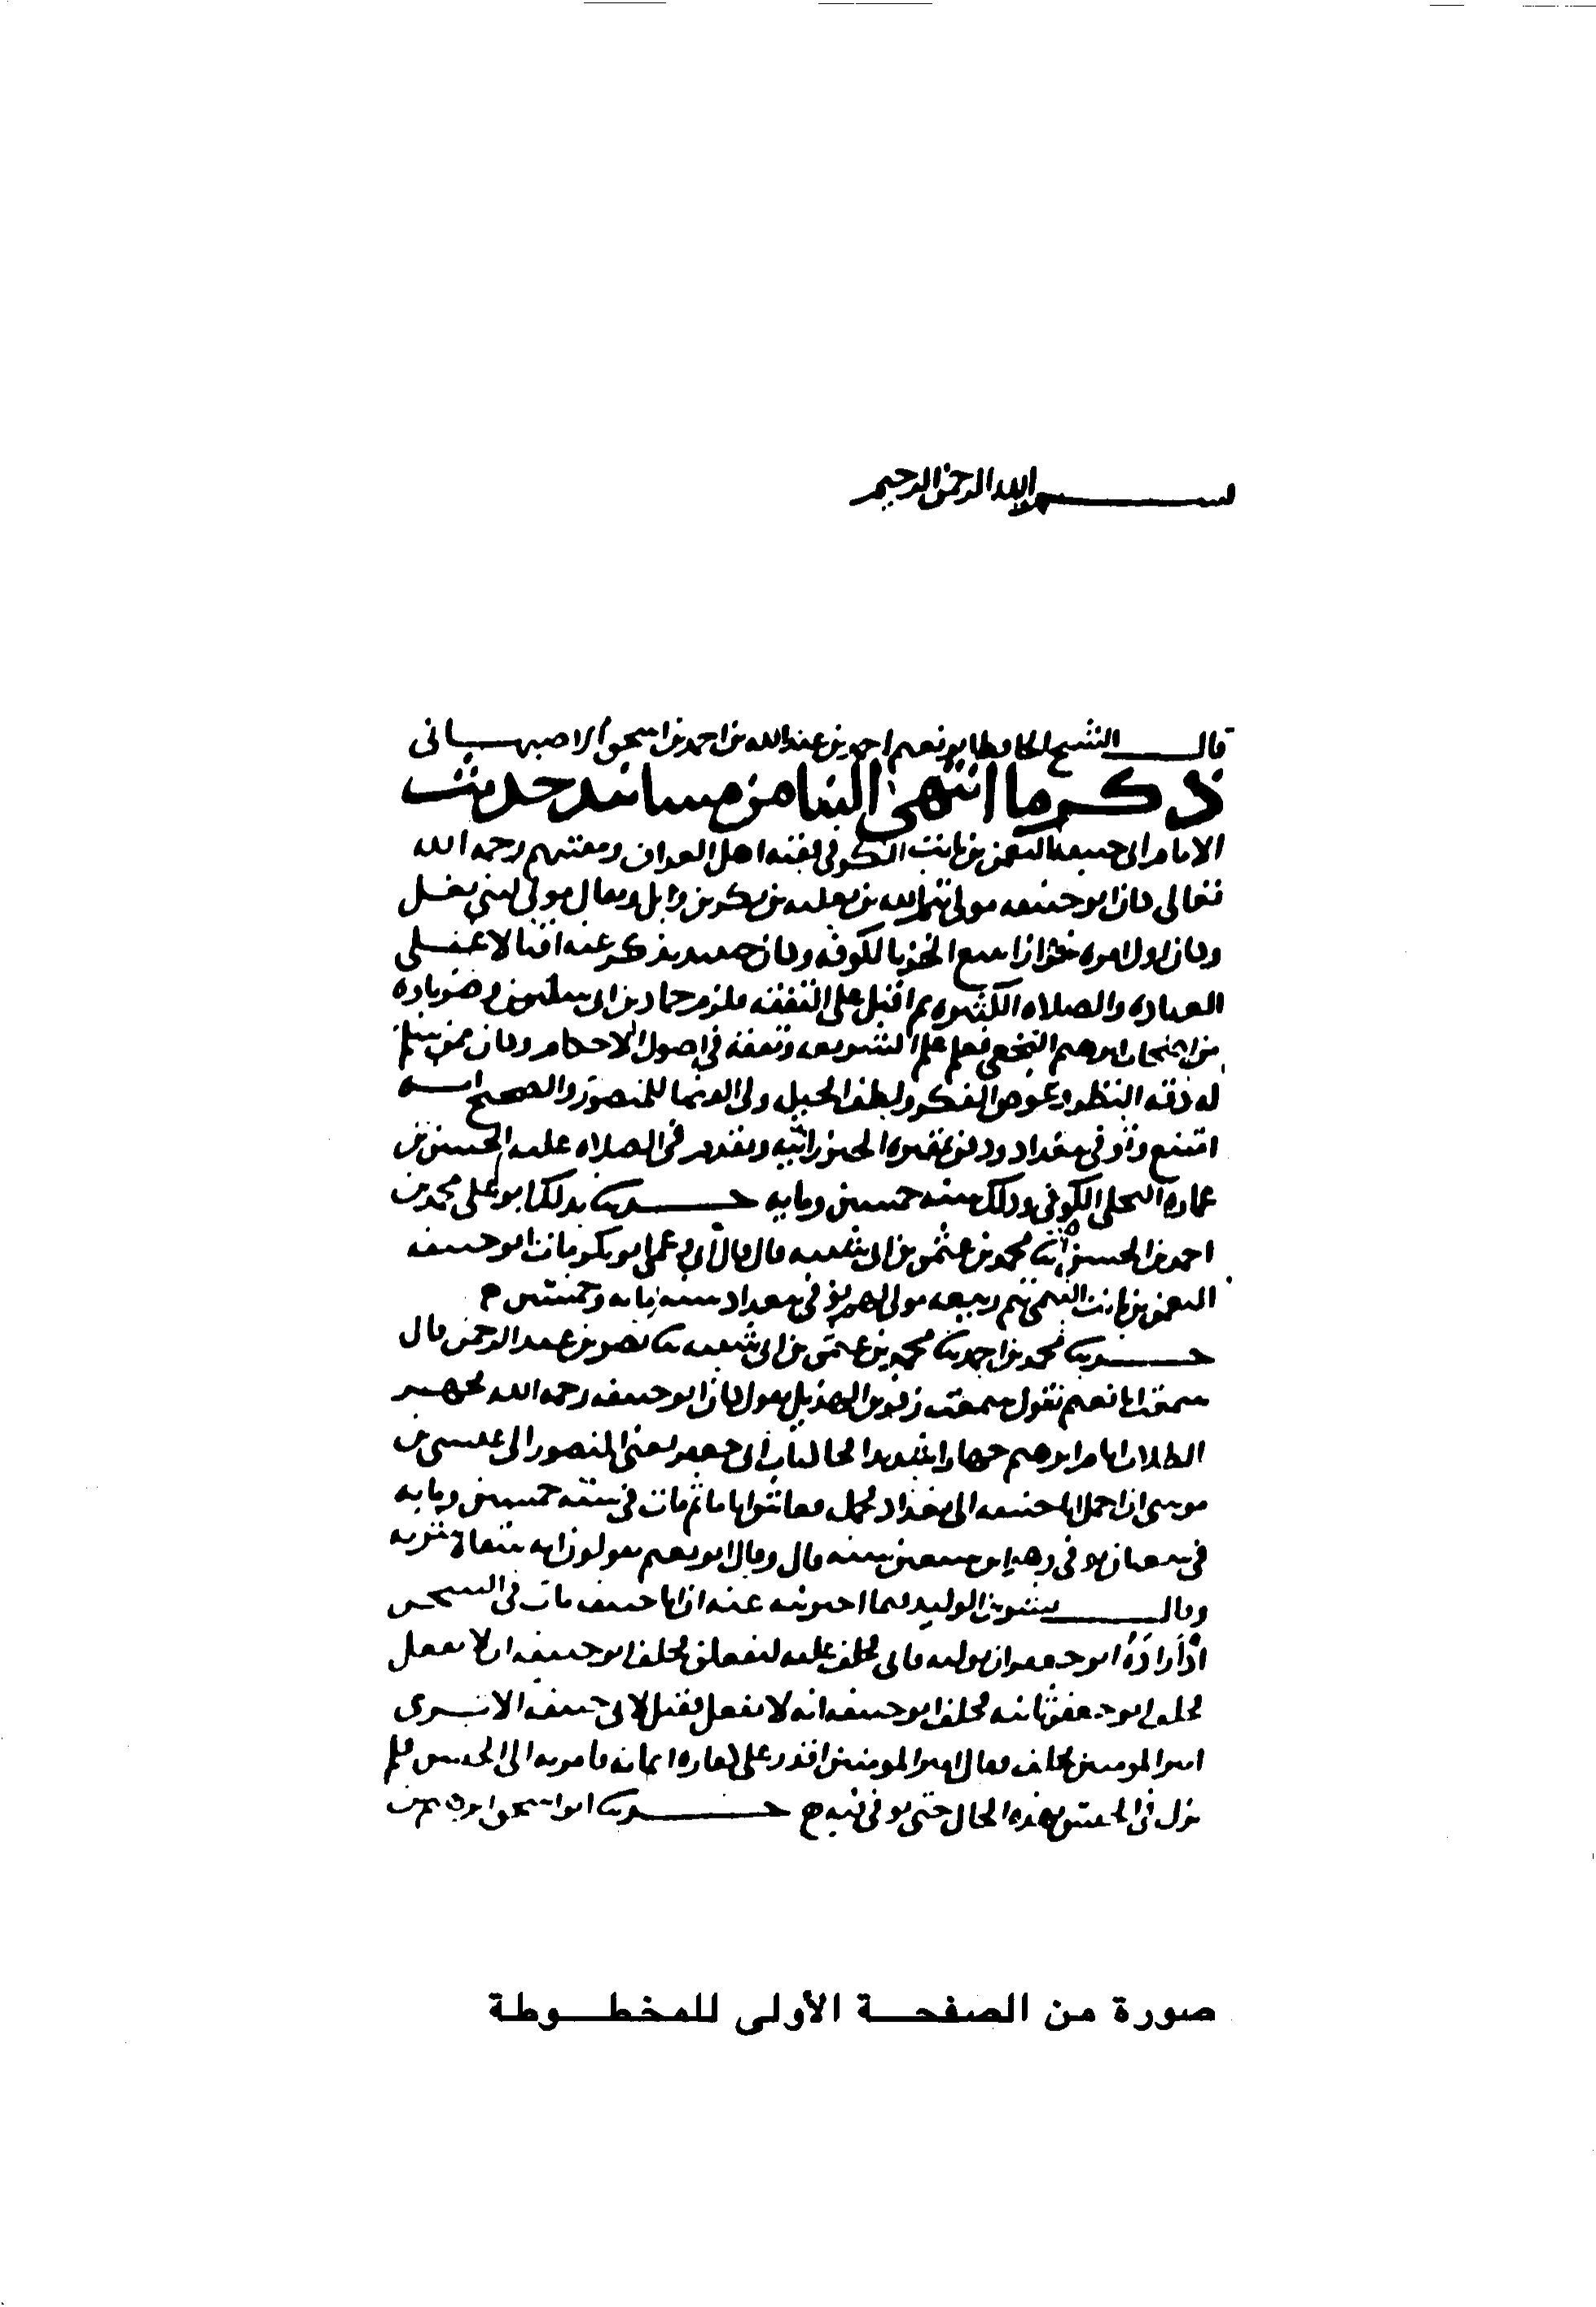 بسم الله الرحمن الرحيم
قال الشيخ الحافظ ابو نعيم احمد بن عبد الله بن احمد بن اسحق الاصبهاني
ذكر ما انتهى الينا من مسانيد حديث
الامام ابي حنيفة النعمن بن ثابت الكوفي فقيه اهل العراق ومفتيهم رحمه الله
تعالى كان ابو حنيفه مولى تيم الله بن ثعلبه بن بكر بن وايل ويقال مولى لبني قفل
وكان اول امره خزازا يبيع الخز بالكوفه وكان حميد يذكر عنه اقبالا على
العباده والصلاه الكثيره ثم اقبل على التفقه فلزم حماد بن ابي سليمن
من اصحاب ابرهيم النخعي فعلم علم الشريعه وتفقه في اصول الاحكام وكان ممن سلم
له دقه النظر وغوص الفكر ولطف الحيل ولي القضا للمنصور والصحيح انه
امتنع وتوفي ببغداد ودفن بمقبره الخيزرانيه وتقدم في الصلاه عليه الحسن بن
عماره البجلي الكوفي وذلك سنه خمسين ومايه حدثنا بذلك ابو علي محمد بن
احمد بن الحسن ثنا محمد بن عثمن بن ابي شيبه قال قال ابي وعمي ابو بكر مات ابو حنيفه
النعمن بن ثابت التيمي تيم ربيعه مولى لهم توفي ببغداد سنه مايه وخمسين
حدثنا محمد بن احمد ثنا محمد بن عثمن بن ابي شيبه ثنا نصر بن عبد الرحمن قال
سمعت ابا نعيم يقول سمعت زفر بن الهذيل يقول كان ابو حنيفه رحمه الله يجهر
الكلام ايام ابرهيم جهارا شديدا كتاب ابي جعفر يعني المنصور الى عيسى بن
موسى ان احمل ابا حنيفه الى بغداد فحمل فعاش اياما ثم مات في سنه خمسين ومايه
في شعبان توفي وهو ابن سبعين سنه قال وقال ابو نعيم
وقال بشر بن الوليد فيما اخبرت عنه ان ابا حنيفه مات في السجن
اراده ابو جعفر ان يوليه فابى فحلف عليه ليفعلن فحلف ابو حنيفه ان لا يفعل
فحلف ابو جعفر ثانيه فحلف ابو حنيفه انه لا يفعل فقيل لابي حنيفه الا ترى
امير المومنين يحلف فقال امير المومنين اقدر على كفاره ايمانه فامر به الى الحبس فلم
يزل في الحبس بهذه الحال حتى توفي فيه حدثنا ابو اسحق ابرهيم بن
صورة من الصفحة الأولى للمخطوطة